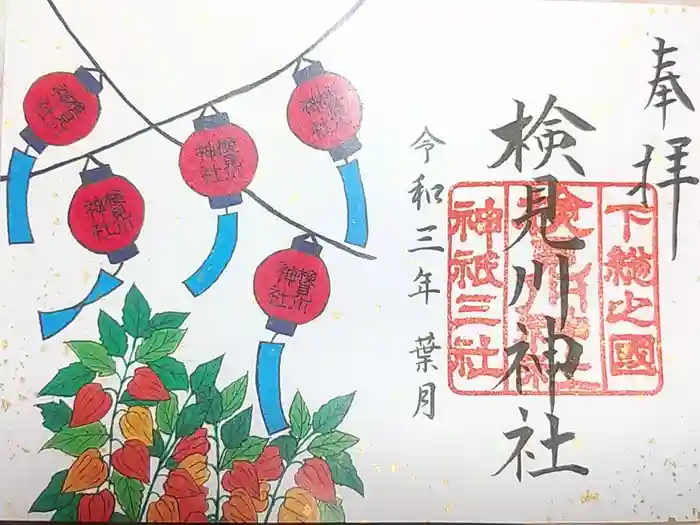 奉拝
検見川神社
下総之国
神祇三社
令和三年 葉月
検見川
神社
検見川
神社
検見川
神社
検見川
神社
検見川
神社